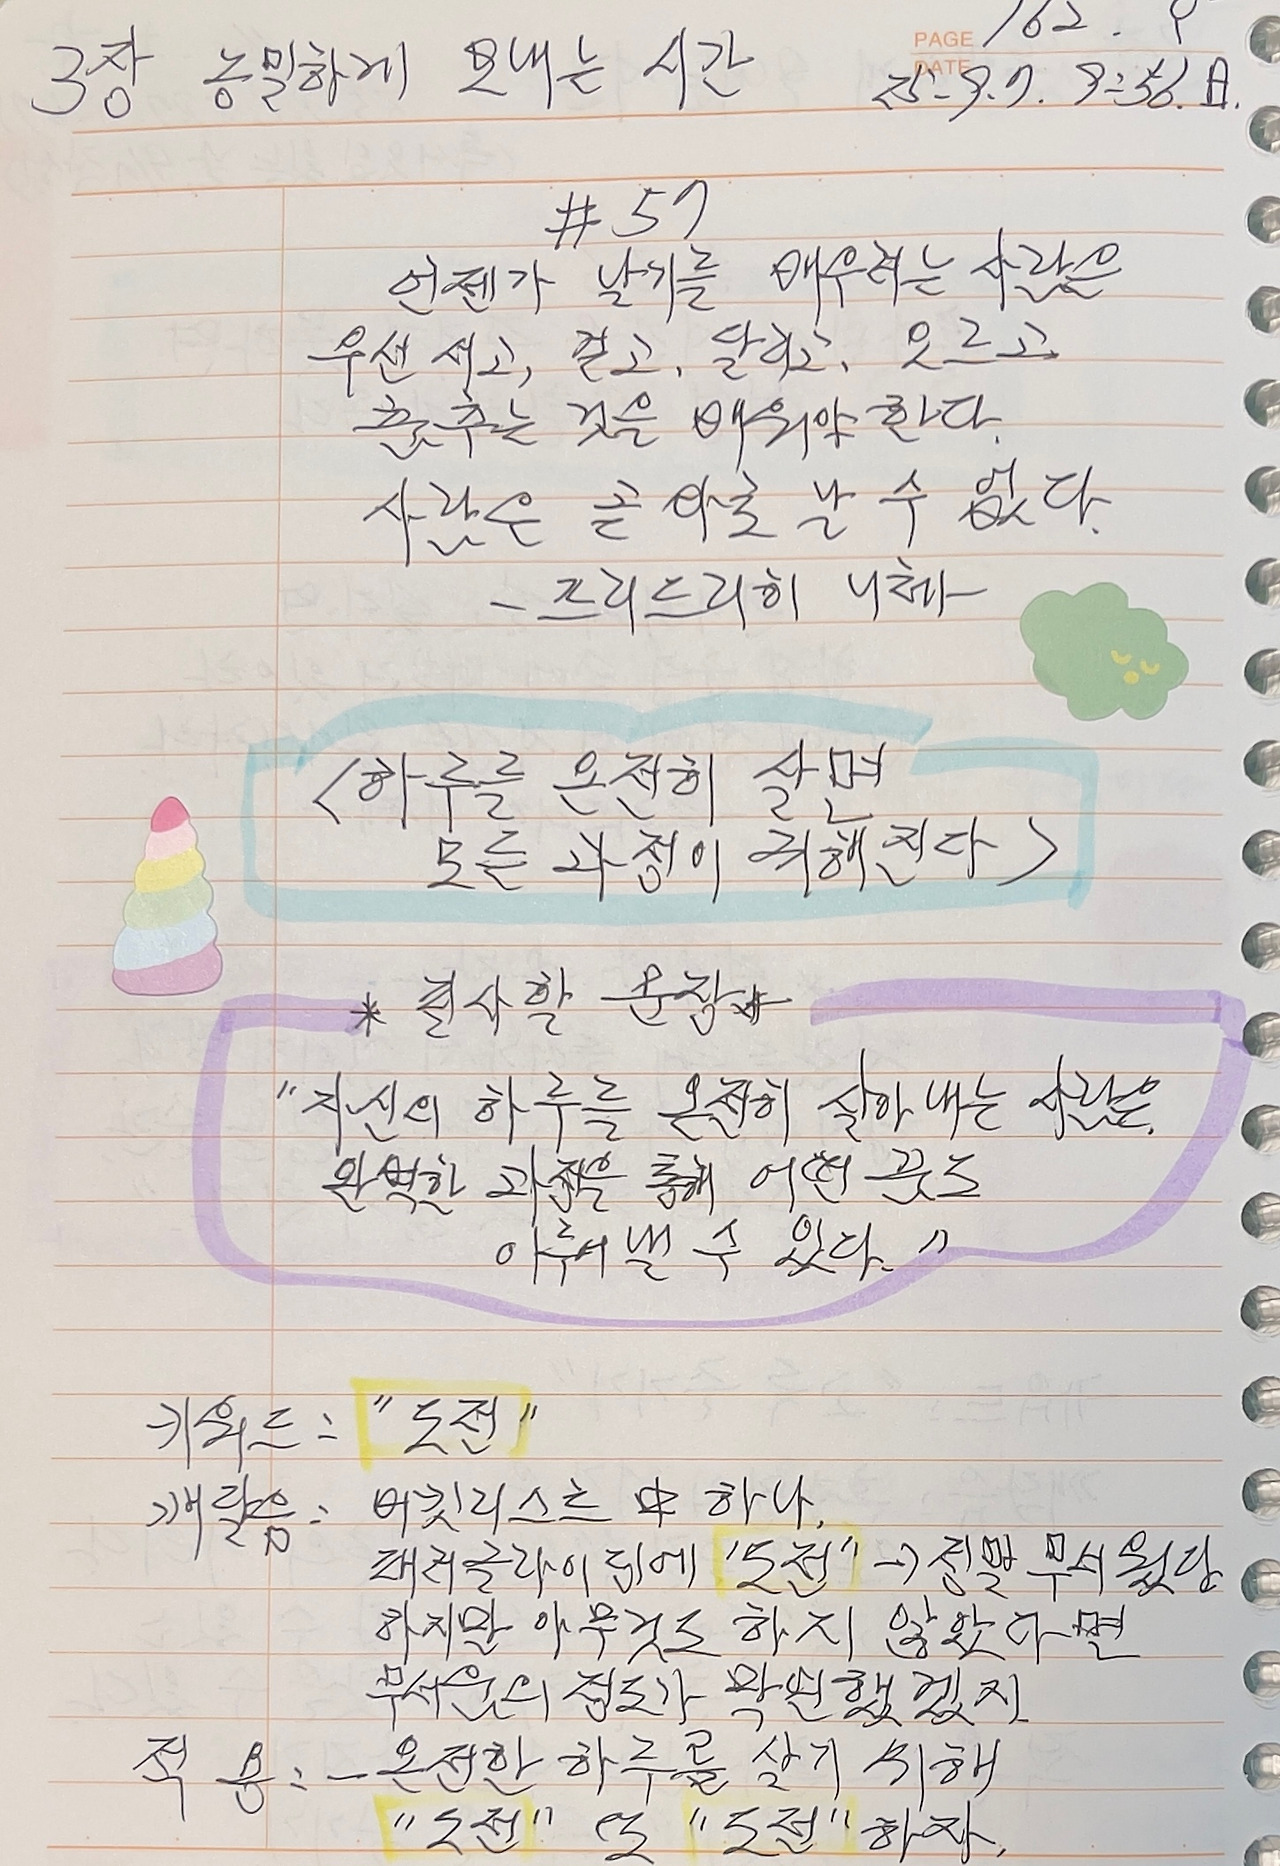 PAGE 162. P
DATE 25-9-7. 9:56. A.
3장 농밀하게 보내는 시간
#57
언젠가 날기를 배우려는 사람은
우선 서고, 걷고, 달리고, 오르고
춤추는 것을 배워야 한다.
사람은 곧 바로 날 수 없다.
- 프리드리히 니체 -
<하루를 온전히 살면
모든 과정이 귀해진다>
* 필사할 문장 *
"자신의 하루를 온전히 살아 내는 사람은
완벽한 과정을 통해 어떤 꿈도
이루어 낼 수 있다."
키워드 : "도전"
깨달음 : 버킷리스트 中 하나.
패러글라이딩에 '도전' → 정말 무서웠당
하지만 아무것도 하지 않았다면
무서움의 정도가 막연했겠지
적용 : - 온전한 하루를 살기 위해
"도전" 또 "도전" 하자.